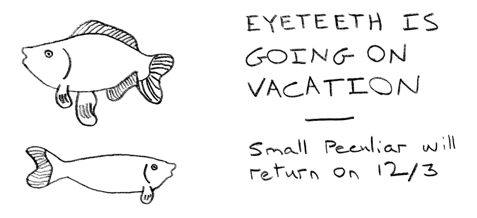 EYETEETH IS
GOING ON
VACATION
Small Peculiar will
return on 12/3